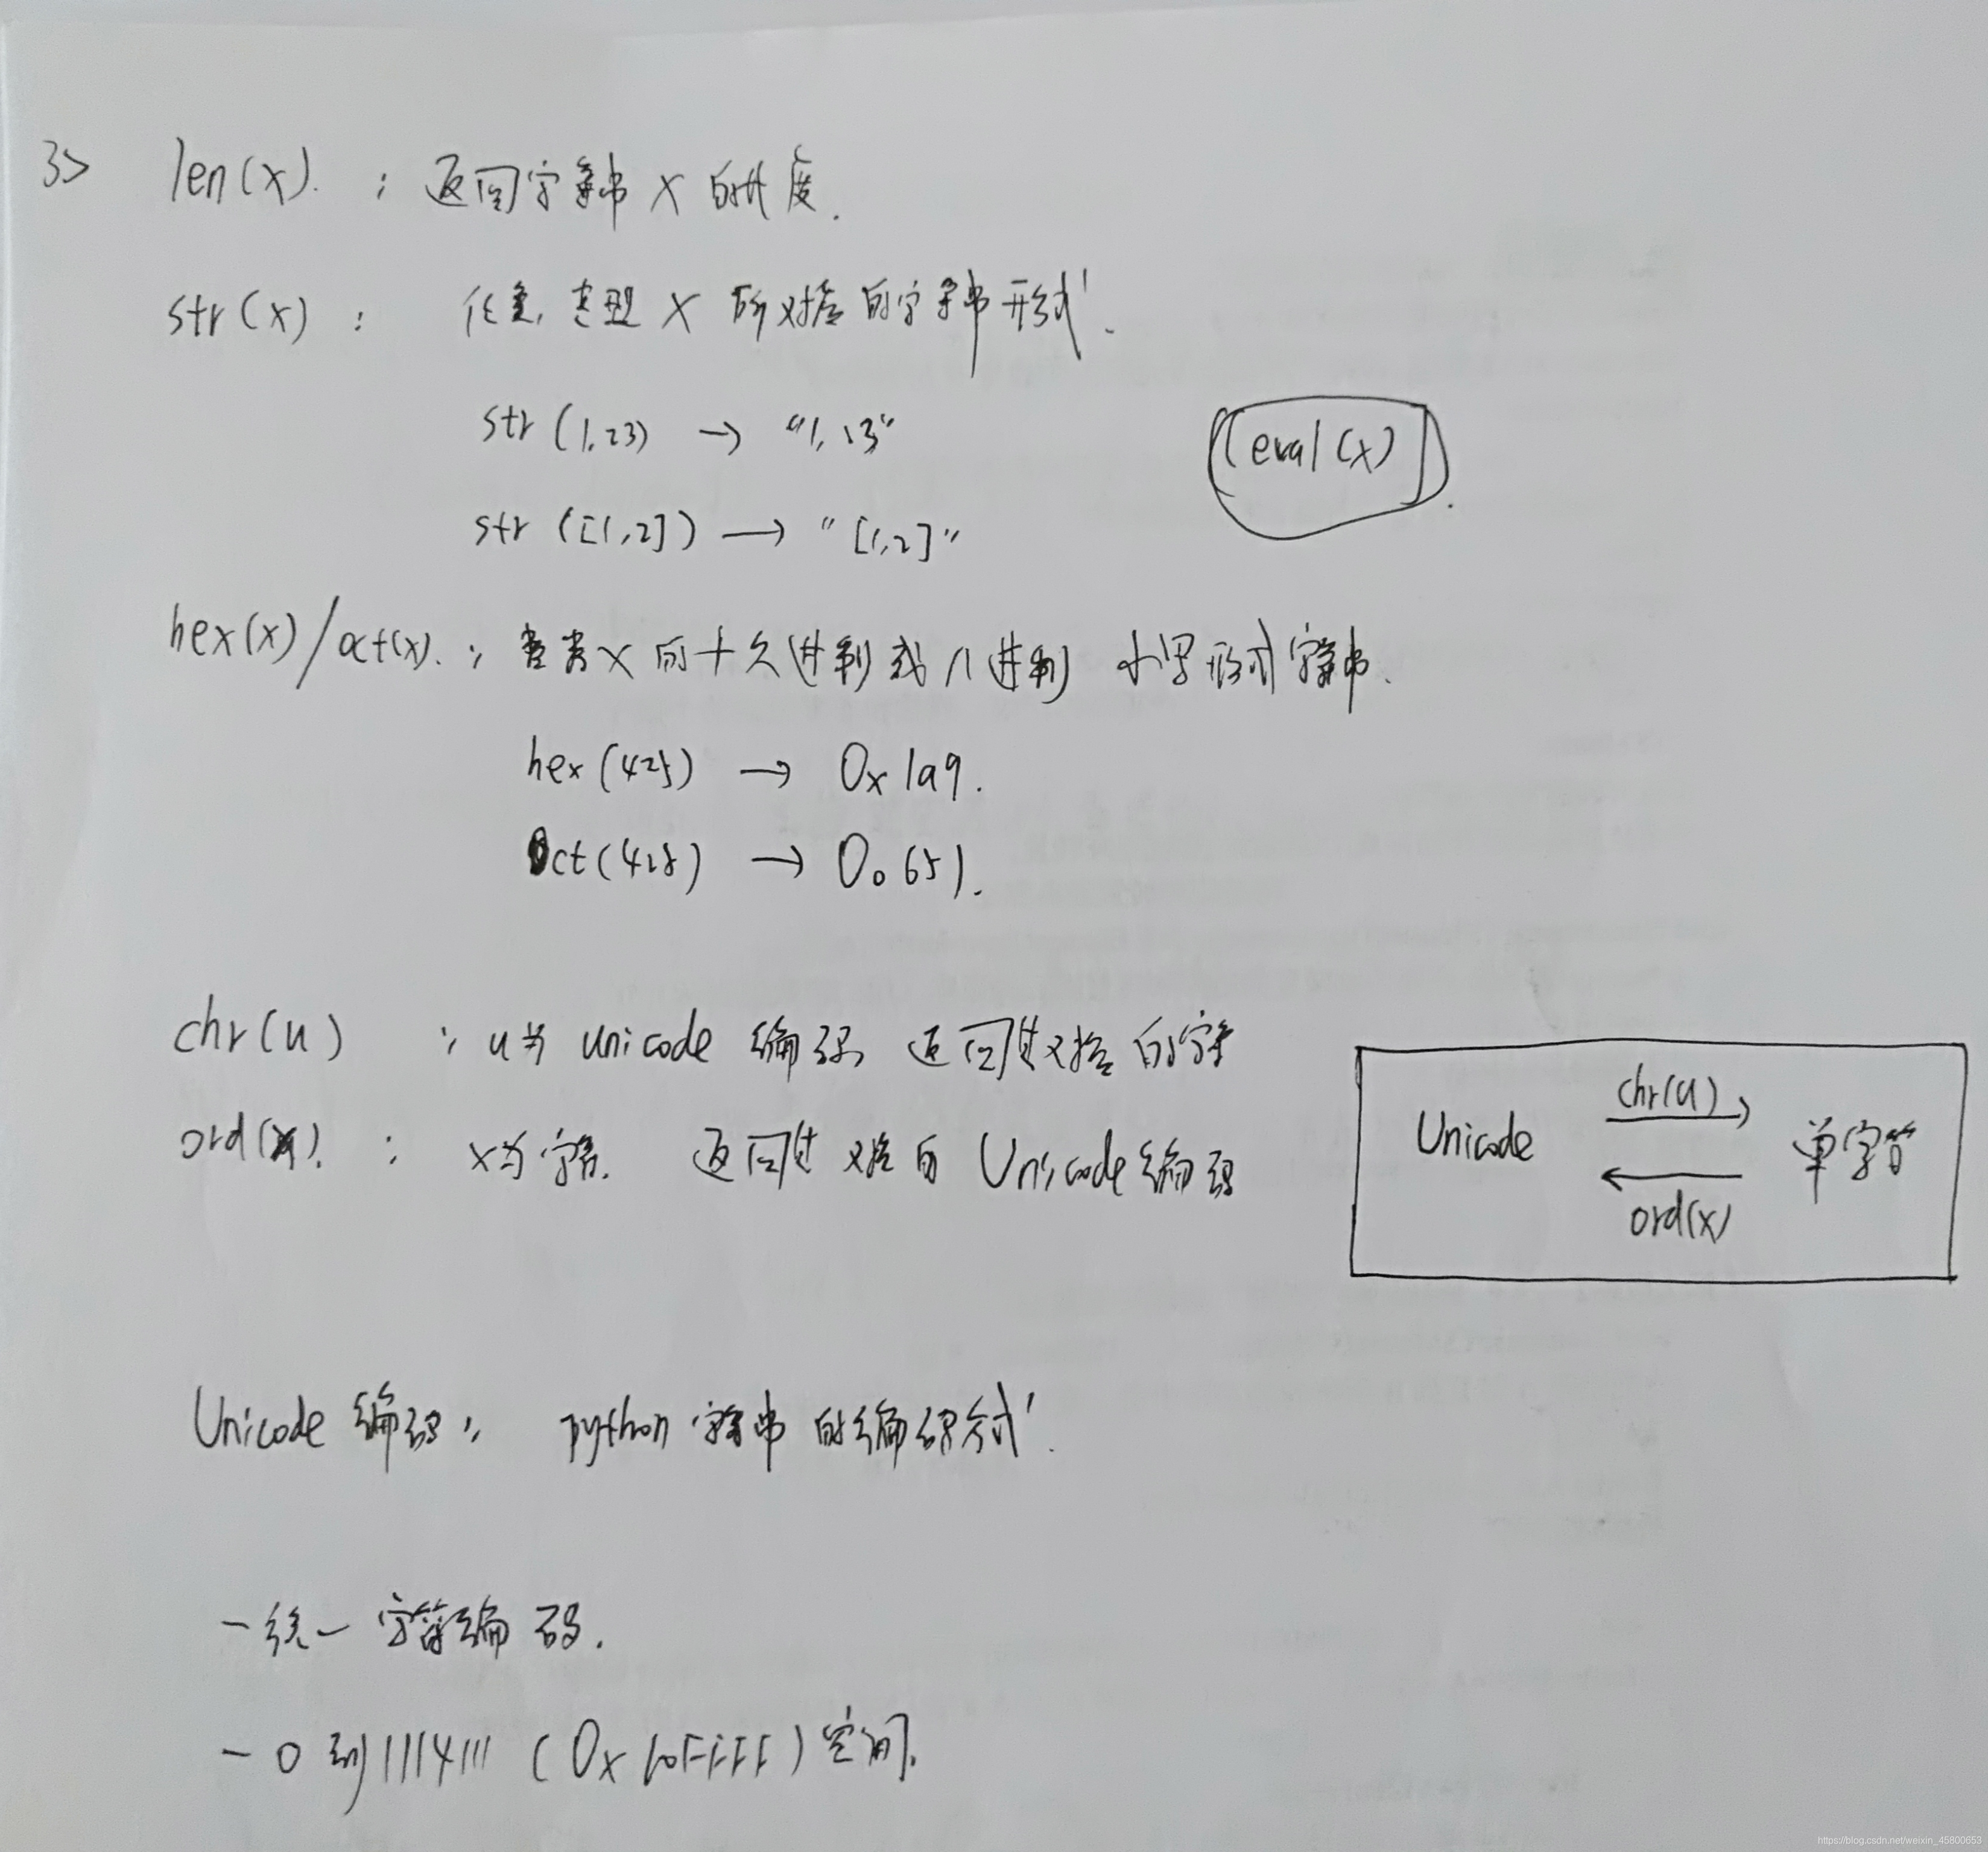 3> len(x). : 返回字符串 X 的长度.
str(x) : 任意类型 X 所对应的字符串形式.
str(1.23) → "1.23"
eval(x)
str([1,2]) → "[1,2]"
hex(x)/oct(x). : 整数 x 的十六进制或八进制 小写形式字符串.
hex(425) → 0x1a9.
Oct(425) → 0o651.
chr(u) : u为 unicode 编码 返回其对应的字符
ord(x). : x为字符. 返回其对应的 Unicode编码
chr(u)
Unicode 单字符
ord(x)
Unicode 编码: python 字符串的编码方式.
- 统一字符编码.
- 0 到 1114111 (0x10FFFF) 空间.
https://blog.csdn.net/weixin_45800653